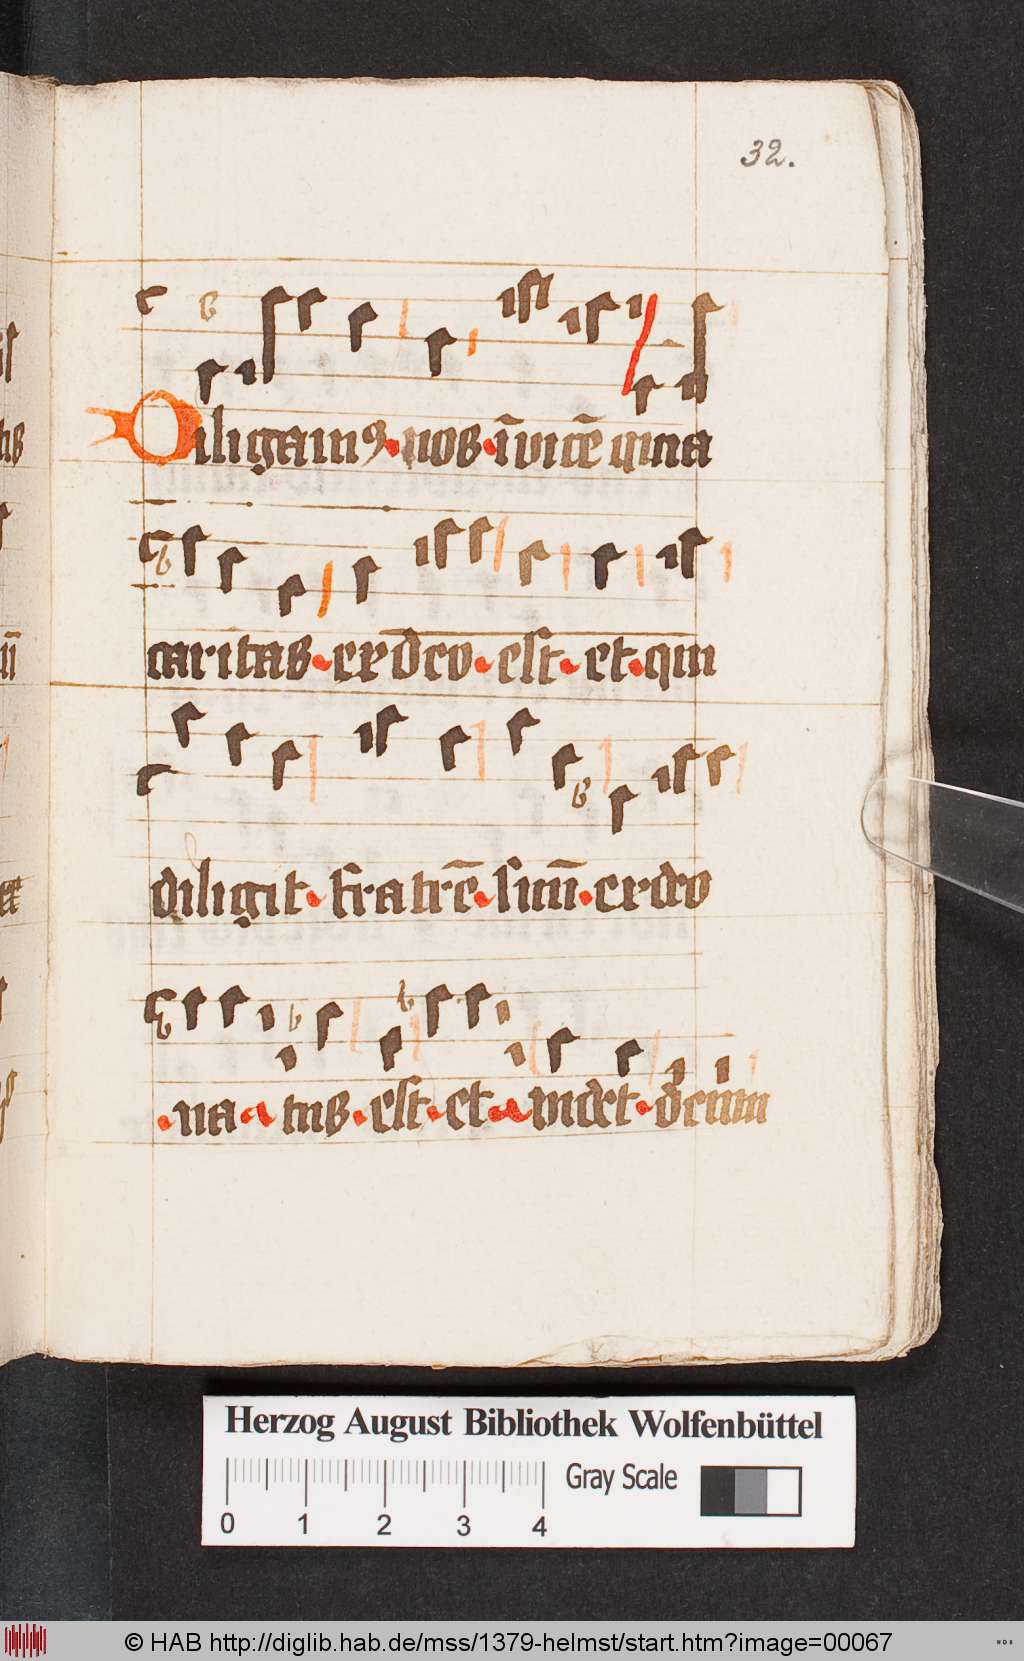 32.
Diligam⁹ nos īvicē q̇nia
caritas ex deo est et qui
diligit fratrē suū ex deo
na tus est et videt deum
Herzog August Bibliothek Wolfenbüttel
Gray Scale
0 1 2 3 4
© HAB http://diglib.hab.de/mss/1379-helmst/start.htm?image=00067